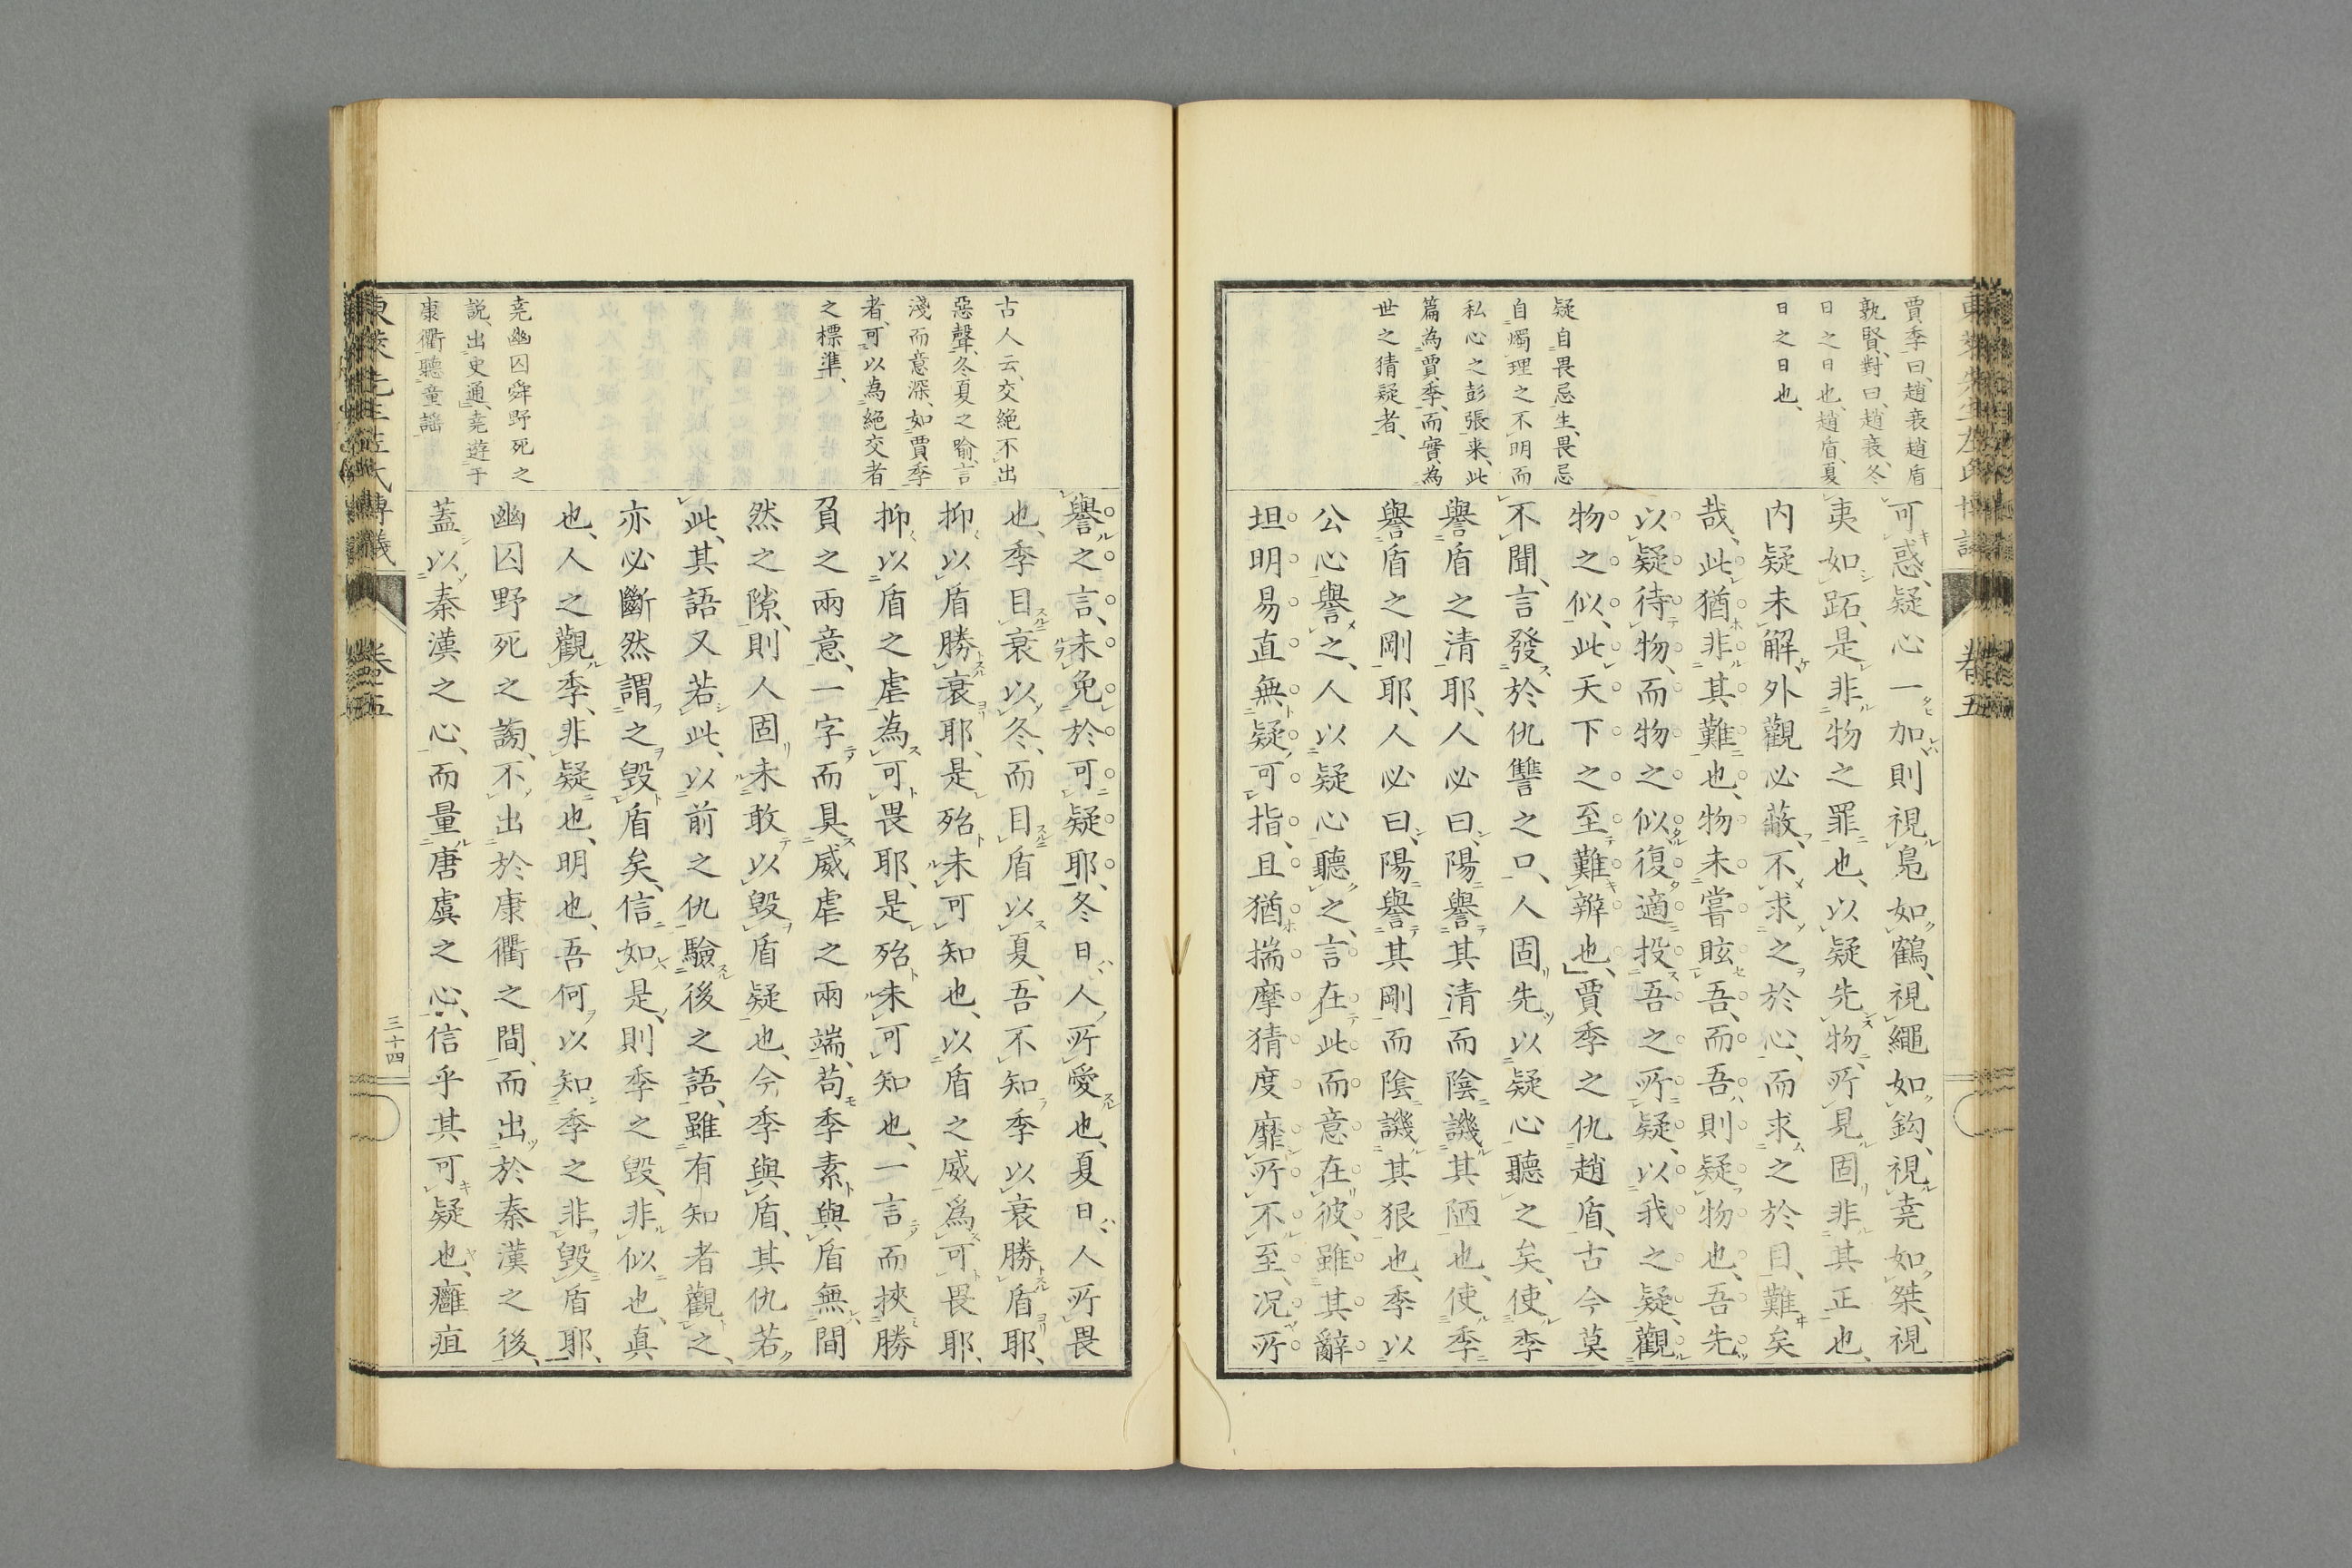 賈季曰、趙衰趙盾
孰賢、對曰、趙衰、冬
日之日也、趙盾、夏
日之日也、
疑自畏忌生、畏忌
自燭理之不明而
私心之彭張来、此
篇為賈季、而實為
世之猜疑者、
可惑、疑心一加、則視鳧如鶴、視繩如鈎、視堯如桀、視
夷如跖、是非物之罪也、以疑先物、所見固非其正也、
内疑未解外觀必蔽、不求之於心、而求之於目、難矣
哉、此猶非其難也、物未嘗眩吾、而吾則疑物也、吾先
以疑待物、而物之似復適投吾之所疑、以我之疑、觀
物之似、此天下之至難辨也、賈季之仇趙盾、古今莫
不聞、言發於仇讐之口、人固先以疑心聽之矣、使季
譽盾之清耶、人必曰、陽譽其清而陰譏其陋也、使季
譽盾之剛耶、人必曰、陽譽其剛而陰譏其狠也、季以
公心譽之、人以疑心聽之、言在此而意在彼、雖其辭
坦明易直無疑可指、且猶揣摩猜度靡所不至、况所
東萊先生左氏博議
卷五
古人云、交絶不出
惡聲、冬夏之喻、言
淺而意深、如賈季
者、可以為絶交者
之標準、
堯幽囚舜野死之
説、出史通、堯遊于
康衢聽童謡
譽之言、未免於可疑耶、冬日人所愛也、夏日人所畏
也、季目衰以冬、而目盾以夏、吾不知季以衰勝盾耶、
抑以盾勝衰耶、是殆未可知也、以盾之威爲可畏耶、
抑以盾之虐為可畏耶、是殆未可知也、一言而挾勝
負之兩意、一字而具威虐之兩端、苟季素與盾無間
然之隙、則人固未敢以毀盾疑也、今季與盾、其仇若
此、其語又若此、以前之仇驗後之語、雖有知者觀之、
亦必斷然謂之毀盾矣、信如是、則季之毀、非似也、真
也、人之觀季、非疑也、明也、吾何以知季之非毀盾耶、
幽囚野死之謗、不出於康衢之間、而出於秦漢之後、
蓋以秦漢之心、而量唐虞之心、信乎其可疑也、癰疽
東萊先生左氏博議
卷五
三十四